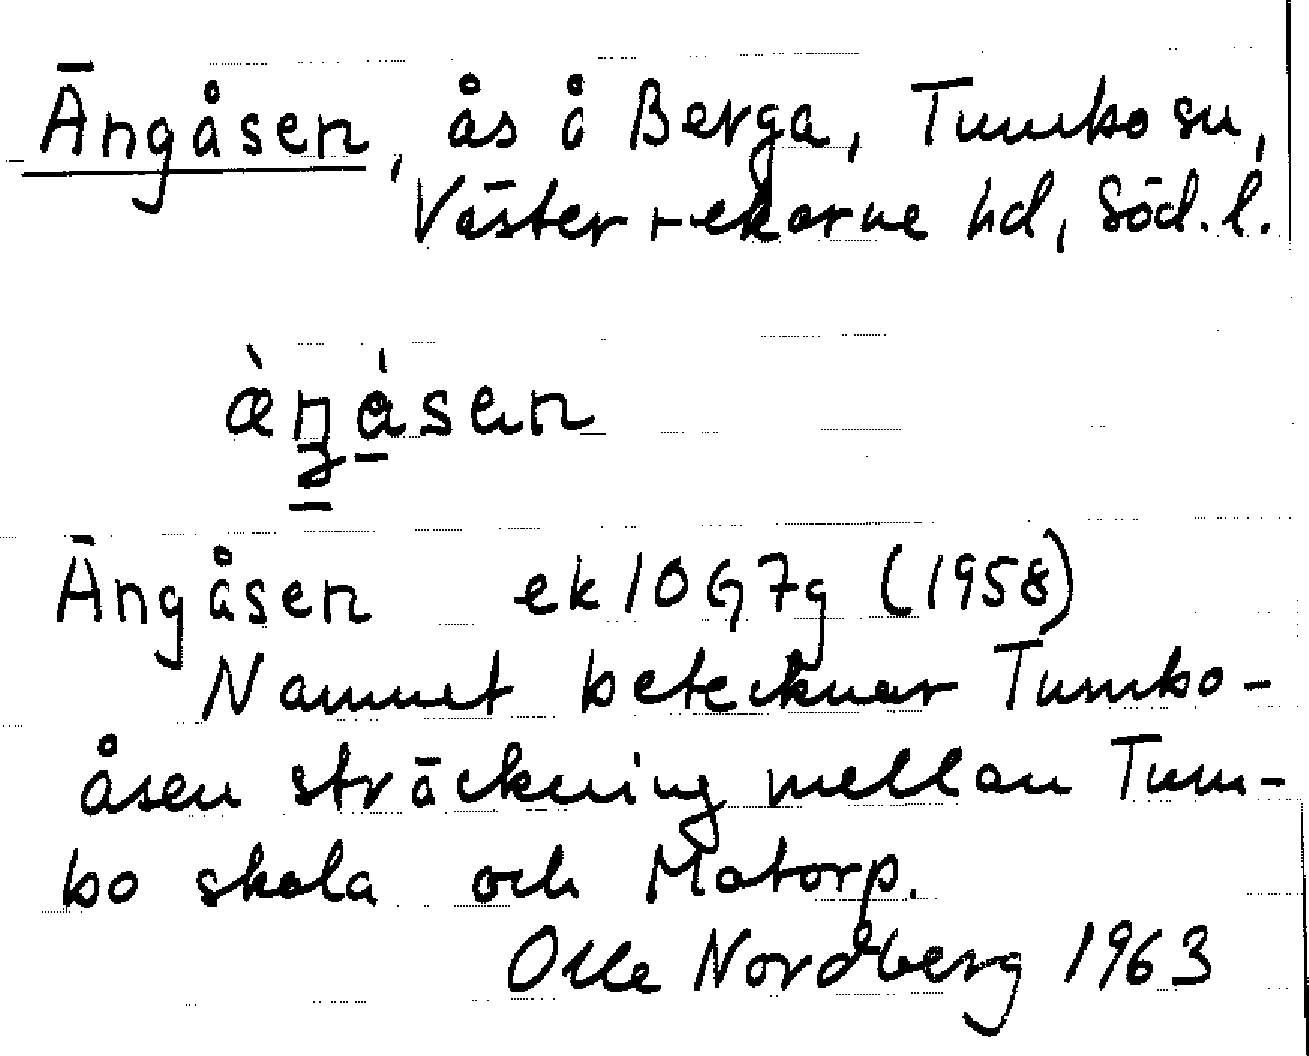 Ängåsen, ås å Berga, Tumbo sn,
Västerrekarne hd, Söd. l.
Ängåsen ek 10G7g (1958)
Namnet betecknar Tumbo-
åsen sträckning mellan Tum-
bo skola och Matorp.
Olle Nordberg 1963